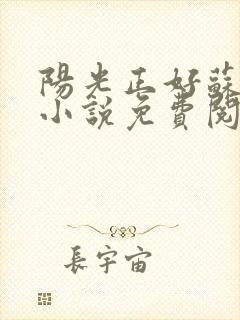 陽光正好蘇
小說免費閱
長宇宙